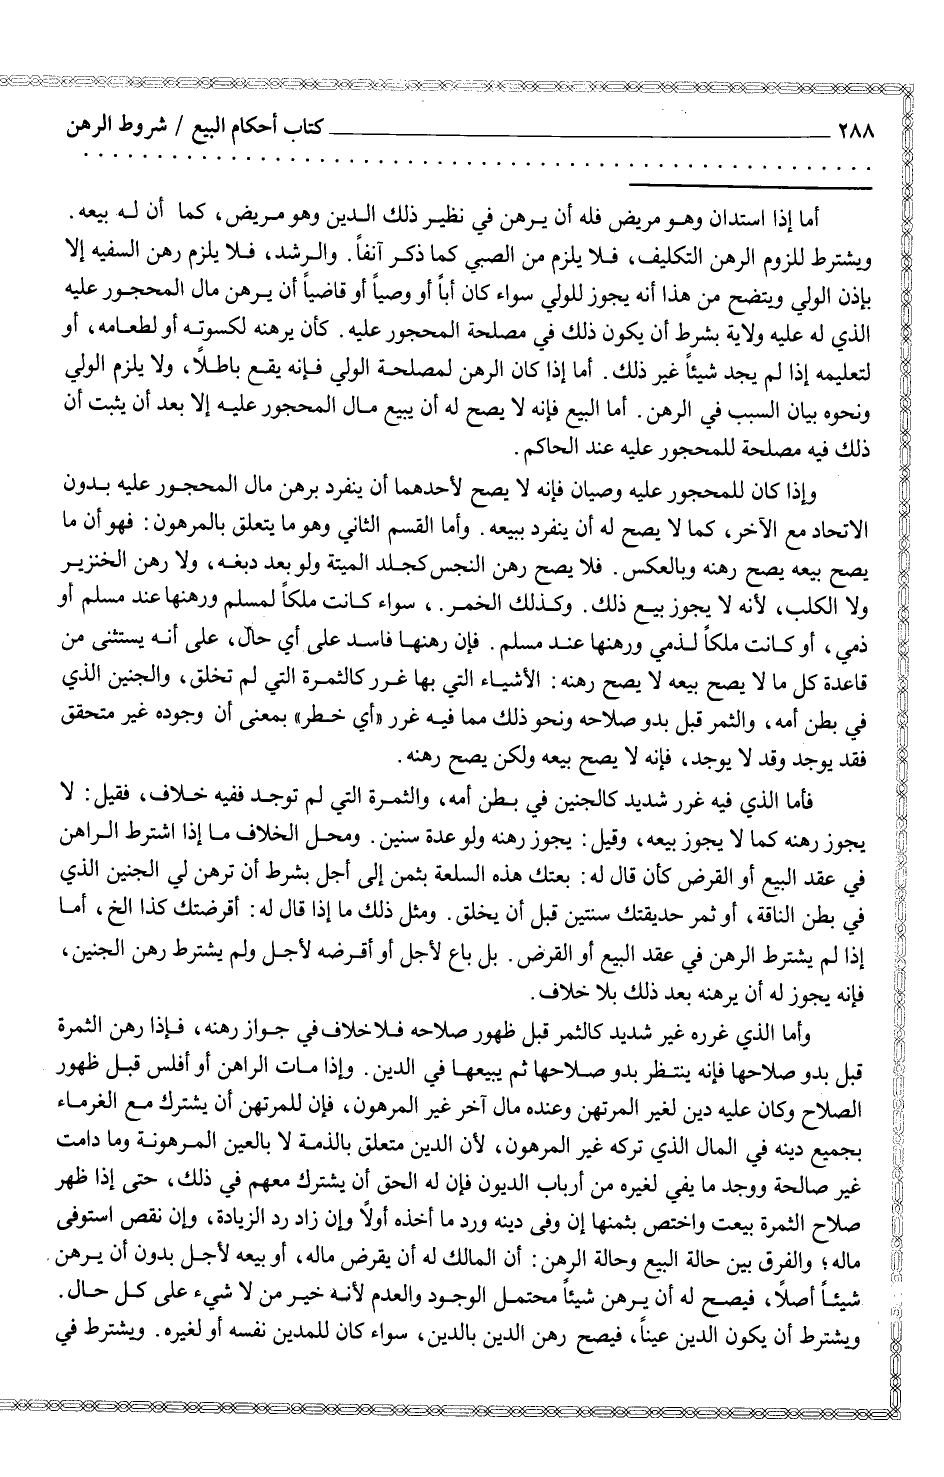 ٢٨٨ كتاب أحكام البيع / شروط الرهن
أما إذا استدان وهو مريض فله أن يرهن في نظير ذلك الدين وهو مريض، كما أن له بيعه.
ويشترط للزوم الرهن التكليف، فلا يلزم من الصبي كما ذكر آنفاً. والرشد، فلا يلزم رهن السفيه إلا
بإذن الولي ويتضح من هذا أنه يجوز للولي سواء كان أباً أو وصياً أو قاضياً أن يرهن مال المحجور عليه
الذي له عليه ولاية بشرط أن يكون ذلك في مصلحة المحجور عليه. كأن يرهنه لكسوته أو لطعامه، أو
لتعليمه إذا لم يجد شيئاً غير ذلك. أما إذا كان الرهن لمصلحة الولي فإنه يقع باطلاً، ولا يلزم الولي
ونحوه بيان السبب في الرهن. أما البيع فإنه لا يصح له أن يبيع مال المحجور عليه إلا بعد أن يثبت أن
ذلك فيه مصلحة للمحجور عليه عند الحاكم.
وإذا كان للمحجور عليه وصيان فإنه لا يصح لأحدهما أن ينفرد برهن مال المحجور عليه بدون
الاتحاد مع الآخر، كما لا يصح له أن ينفرد ببيعه. وأما القسم الثاني وهو ما يتعلق بالمرهون: فهو أن ما
يصح بيعه يصح رهنه وبالعكس. فلا يصح رهن النجس كجلد الميتة ولو بعد دبغه، ولا رهن الخنزير
ولا الكلب، لأنه لا يجوز بيع ذلك. وكذلك الخمر.، سواء كانت ملكاً لمسلم ورهنها عند مسلم أو
ذمي، أو كانت ملكاً لذمي ورهنها عند مسلم. فإن رهنها فاسد على أي حال، على أنه يستثنى من
قاعدة كل ما لا يصح بيعه لا يصح رهنه: الأشياء التي بها غرر كالثمرة التي لم تخلق، والجنين الذي
في بطن أمه، والثمر قبل بدو صلاحه ونحو ذلك مما فيه غرر «أي خطر» بمعنى أن وجوده غير متحقق
فقد يوجد وقد لا يوجد، فإنه لا يصح بيعه ولكن يصح رهنه.
فأما الذي فيه غرر شديد كالجنين في بطن أمه، والثمرة التي لم توجد ففيه خلاف، فقيل: لا
يجوز رهنه كما لا يجوز بيعه، وقيل: يجوز رهنه ولو عدة سنين. ومحل الخلاف ما إذا اشترط الراهن
في عقد البيع أو القرض كأن قال له: بعتك هذه السلعة بثمن إلى أجل بشرط أن ترهن لي الجنين الذي
في بطن الناقة، أو ثمر حديقتك سنتين قبل أن يخلق. ومثل ذلك ما إذا قال له: أقرضتك كذا الخ، أما
إذا لم يشترط الرهن في عقد البيع أو القرض. بل باع لأجل أو أقرضه لأجل ولم يشترط رهن الجنين،
فإنه يجوز له أن يرهنه بعد ذلك بلا خلاف.
وأما الذي غرره غير شديد كالثمر قبل ظهور صلاحه فلا خلاف في جواز رهنه، فإذا رهن الثمرة
قبل بدو صلاحها فإنه ينتظر بدو صلاحها ثم يبيعها في الدين. وإذا مات الراهن أو أفلس قبل ظهور
الصلاح وكان عليه دين لغير المرتهن وعنده مال آخر غير المرهون، فإن للمرتهن أن يشترك مع الغرماء
بجميع دينه في المال الذي تركه غير المرهون، لأن الدين متعلق بالذمة لا بالعين المرهونة وما دامت
غير صالحة ووجد ما يفي لغيره من أرباب الديون فإن له الحق أن يشترك معهم في ذلك، حتى إذا ظهر
صلاح الثمرة بيعت واختص بثمنها إن وفى دينه ورد ما أخذه أولاً وإن زاد رد الزيادة، وإن نقص استوفى
ماله؛ والفرق بين حالة البيع وحالة الرهن: أن المالك له أن يقرض ماله، أو بيعه لأجل بدون أن يرهن
شيئاً أصلاً، فيصح له أن يرهن شيئاً محتمل الوجود والعدم لأنه خير من لا شيء على كل حال.
ويشترط أن يكون الدين عيناً، فيصح رهن الدين بالدين، سواء كان للمدين نفسه أو لغيره. ويشترط في